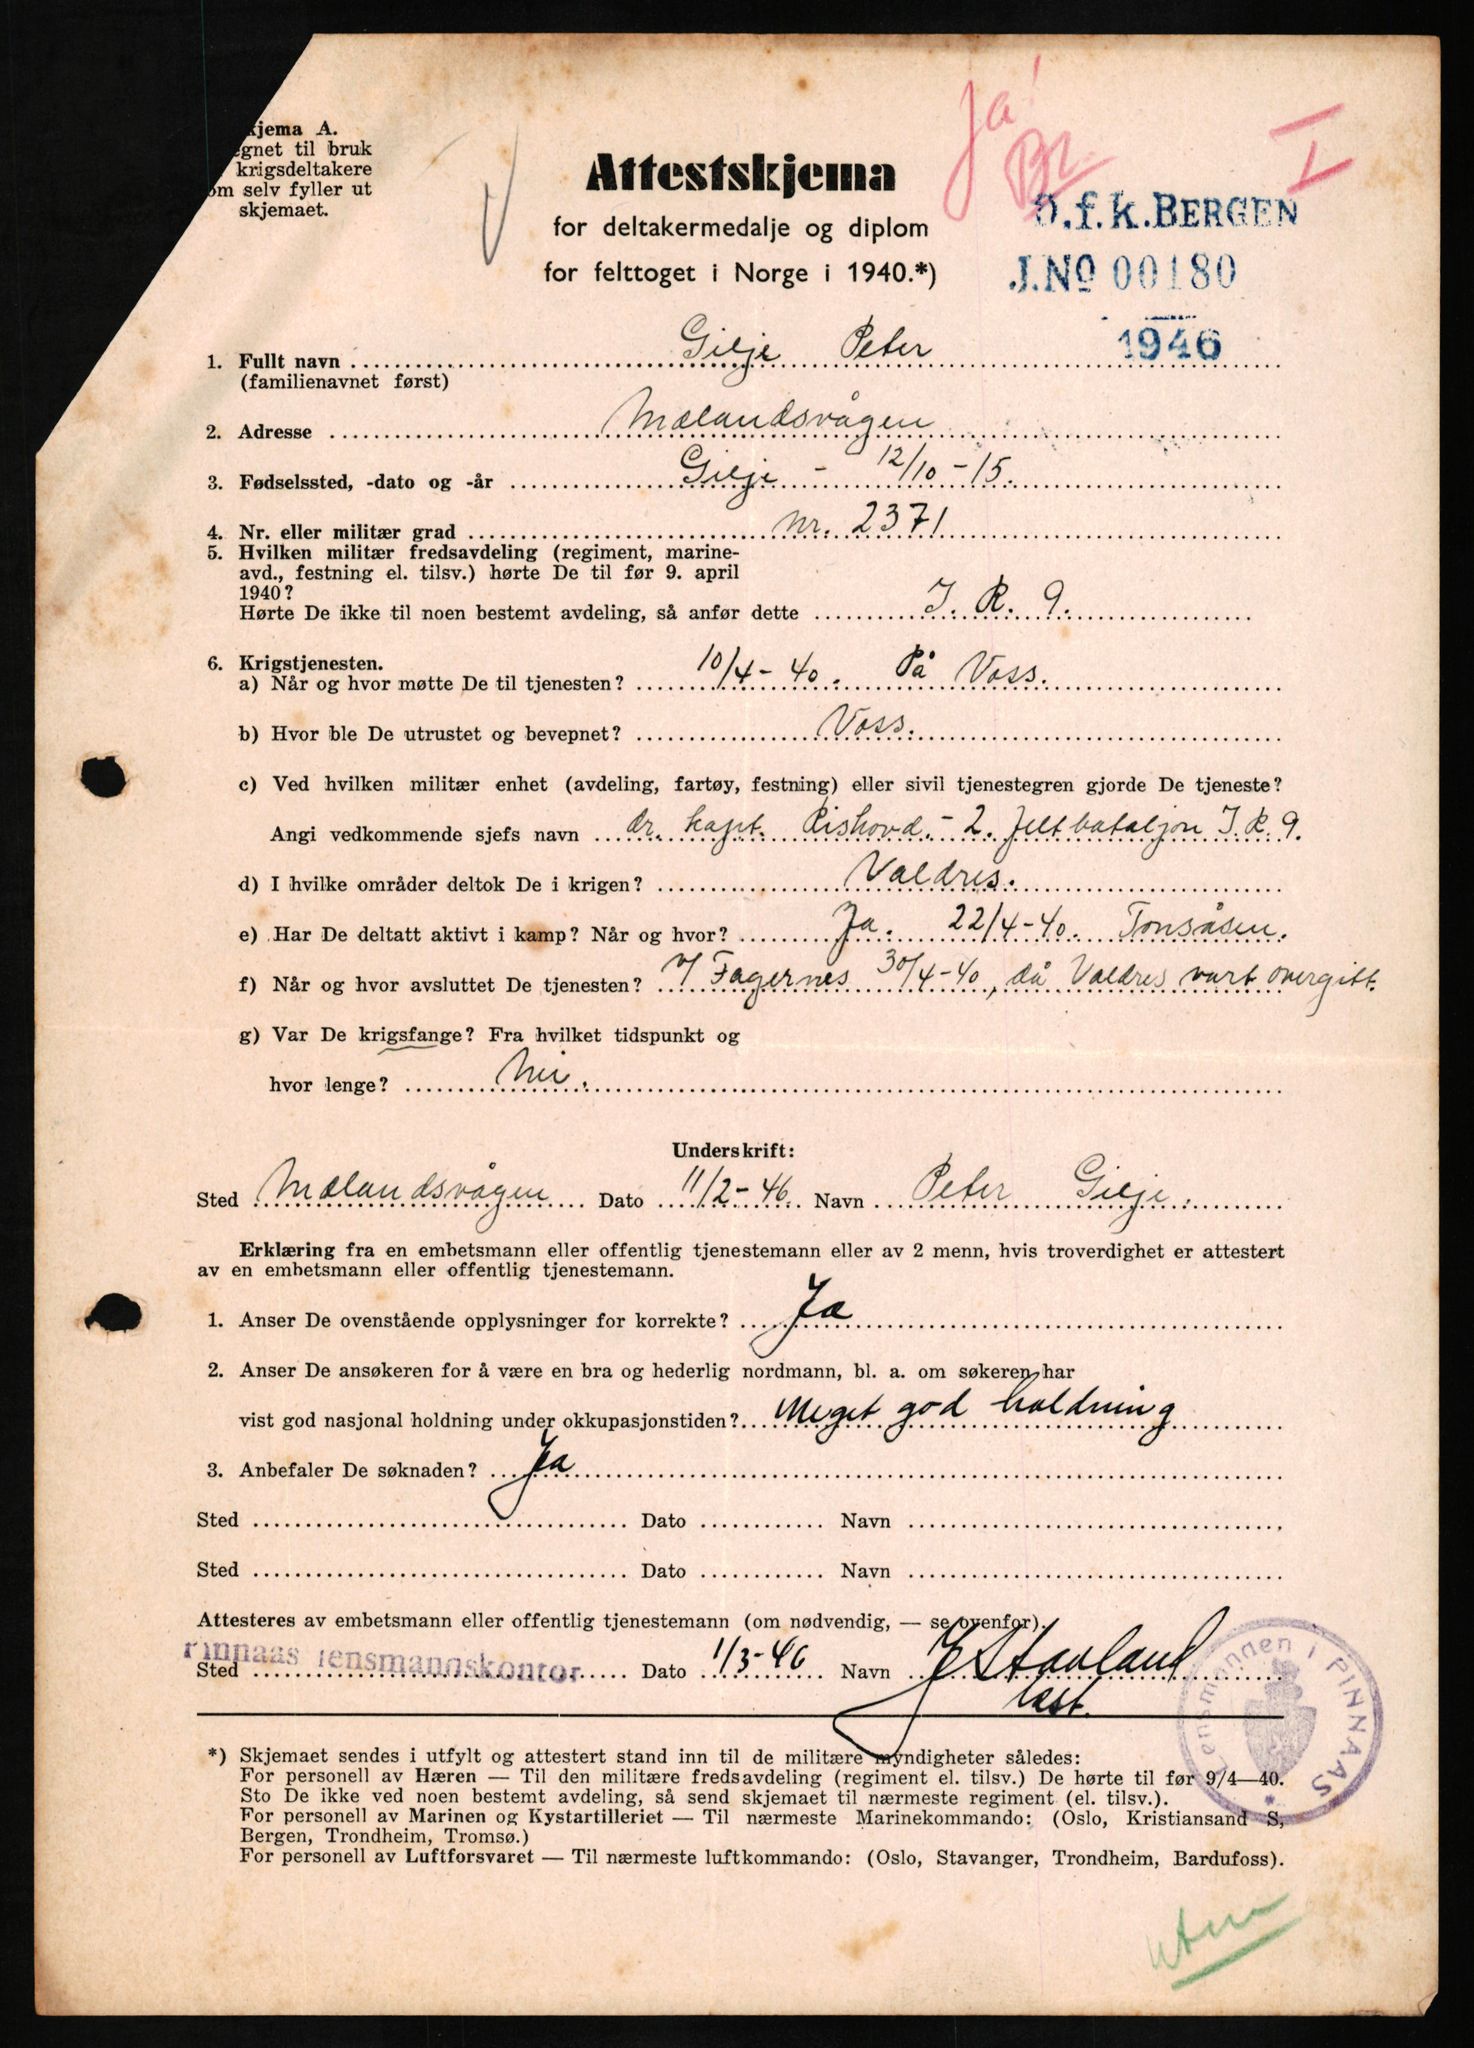 kjema A.
egnet til bruk
krigsdeltakere
om selv fyller ut
skjemaet.
Ja!
Br.
I
Attestskjema
for deltakermedalje og diplom
for felttoget i Norge i 1940.*)
D.f.k. BERGEN
J.No 00180
1946
1. Fullt navn Gilje Peter
(familienavnet først)
2. Adresse Mælandsvågen
3. Fødselssted, -dato og -år Gilje - 12/10 - 15.
4. Nr. eller militær grad nr. 2371
5. Hvilken militær fredsavdeling (regiment, marine-
avd., festning el. tilsv.) hørte De til før 9. april
1940?
Hørte De ikke til noen bestemt avdeling, så anfør dette I. R. 9.
6. Krigstjenesten.
a) Når og hvor møtte De til tjenesten? 10/4 - 40. På Voss.
b) Hvor ble De utrustet og bevepnet? Voss.
c) Ved hvilken militær enhet (avdeling, fartøy, festning) eller sivil tjenestegren gjorde De tjeneste?
Angi vedkommende sjefs navn dr. kapt. Rishovd. - 2. Feltbataljon I. R. 9.
d) I hvilke områder deltok De i krigen? Valdres.
e) Har De deltatt aktivt i kamp? Når og hvor? Ja. 22/4 - 40. Tonsåsen.
f) Når og hvor avsluttet De tjenesten? v/ Fagernes 30/4 - 40, då Valdres vart overgitt.
g) Var De krigsfange? Fra hvilket tidspunkt og
hvor lenge? Nei.
Underskrift:
Sted Mælandsvågen Dato 11/2 - 46. Navn Peter Gilje.
Erklæring fra en embetsmann eller offentlig tjenestemann eller av 2 menn, hvis troverdighet er attestert
av en embetsmann eller offentlig tjenestemann.
1. Anser De ovenstående opplysninger for korrekte? Ja
2. Anser De ansøkeren for å være en bra og hederlig nordmann, bl. a. om søkeren har
vist god nasjonal holdning under okkupasjonstiden? Meget god holdning
3. Anbefaler De søknaden? Ja
Sted Dato Navn
Sted Dato Navn
Attesteres av embetsmann eller offentlig tjenestemann (om nødvendig, — se ovenfor).
Sted Pinnaas lensmannskontor Dato 1/3-46 Navn J Stavland
Lensmannen i PINNAAS
*) Skjemaet sendes i utfylt og attestert stand inn til de militære myndigheter således:
For personell av Hæren — Til den militære fredsavdeling (regiment el. tilsv.) De hørte til før 9/4—40.
Sto De ikke ved noen bestemt avdeling, så send skjemaet til nærmeste regiment (el. tilsv.).
For personell av Marinen og Kystartilleriet — Til nærmeste Marinekommando: (Oslo, Kristiansand S,
Bergen, Trondheim, Tromsø.)
For personell av Luftforsvaret — Til nærmeste luftkommando: (Oslo, Stavanger, Trondheim, Bardufoss).